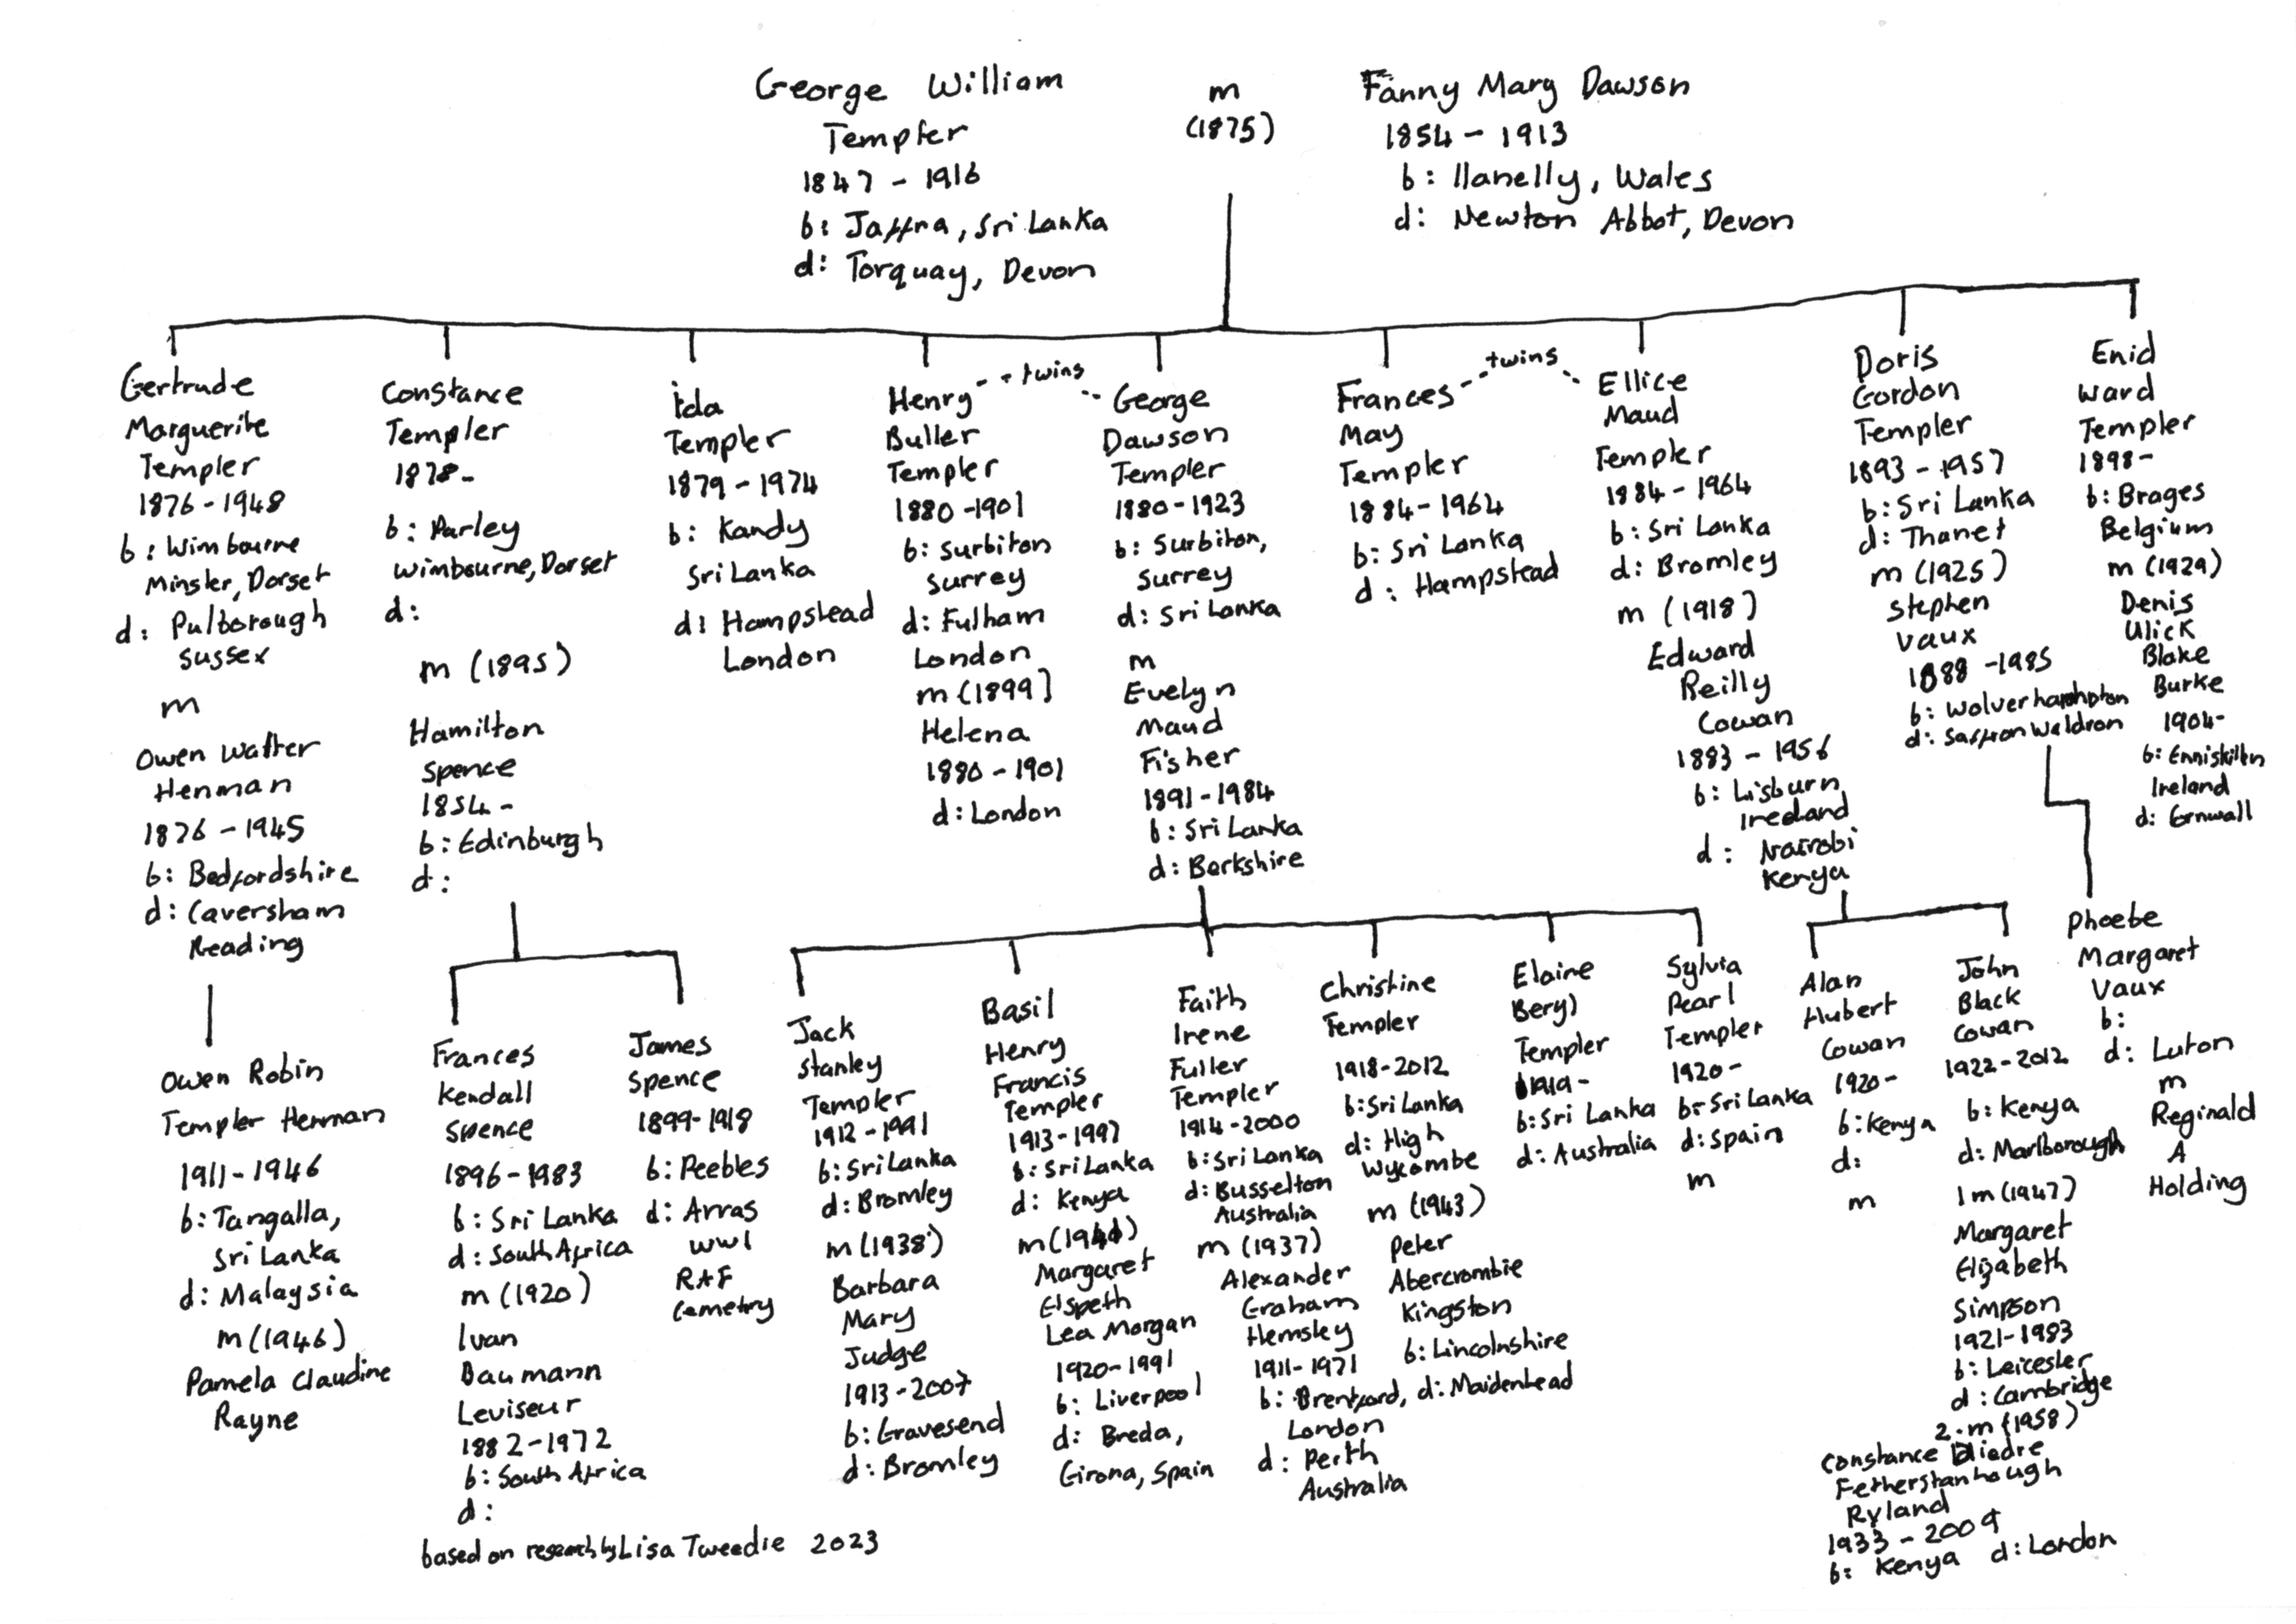 George William
Templer
1847 - 1916
b: Jaffna, Sri Lanka
d: Torquay, Devon
m
(1875)
Fanny Mary Dawson
1854 - 1913
b: llanelly, Wales
d: Newton Abbot, Devon
Gertrude
Marguerite
Templer
1876 - 1948
b: Wimbourne
Minster, Dorset
d: Pulborough
Sussex
m
Owen Walter
Henman
1876 - 1945
b: Bedfordshire
d: Caversham
Reading
Constance
Templer
1878-
b: Parley
Wimbourne, Dorset
d:
m (1895)
Hamilton
Spence
1854 -
b: Edinburgh
d:
Ida
Templer
1879 - 1974
b: Kandy
Sri Lanka
d: Hampstead
London
Henry
Buller
Templer
1880 - 1901
b: Surbiton
Surrey
d: Fulham
London
m (1899)
Helena
1880 - 1901
d: London
twins
George
Dawson
Templer
1880 - 1923
b: Surbiton,
Surrey
d: Sri Lanka
m
Evelyn
Maud
Fisher
1891 - 1984
b: Sri Lanka
d: Berkshire
Frances
May
Templer
1884 - 1964
b: Sri Lanka
d: Hampstead
twins
Ellice
Maud
Templer
1884 - 1964
b: Sri Lanka
d: Bromley
m (1918)
Edward
Reilly
Cowan
1883 - 1956
b: Lisburn
Ireland
d: Nairobi
Kenya
Doris
Gordon
Templer
1893 - 1957
b: Sri Lanka
d: Thanet
m (1925)
Stephen
Vaux
1888 - 1985
b: Wolverhamhpton
d: Saffron Waldron
Enid
Ward
Templer
1898-
b: Brages
Belgium
m (1929)
Denis
Ulick
Blake
Burke
1904-
b: Enniskillen
Ireland
d: Cornwall
Owen Robin
Templer Henman
1911 - 1946
b: Tangalla,
Sri Lanka
d: Malaysia
m (1946)
Pamela Claudine
Rayne
Frances
Kendall
Spence
1896 - 1983
b: Sri Lanka
d: South Africa
m (1920)
Ivan
Baumann
Leviseur
1882 - 1972
b: South Africa
d:
James
Spence
1899 - 1918
b: Peebles
d: Arras
WW1
RAF
Cemetry
Jack
Stanley
Templer
1912 - 1991
b: Sri Lanka
d: Bromley
m (1938)
Barbara
Mary
Judge
1913 - 2007
b: Gravesend
d: Bromley
Basil
Henry
Francis
Templer
1913 - 1997
b: Sri Lanka
d: Kenya
m
Margaret
Elspeth
Lea Morgan
1920 - 1991
b: Liverpool
d: Breda,
Girona, Spain
Faith
Irene
Fuller
Templer
1914 - 2000
b: Sri Lanka
d: Busselton
Australia
m (1937)
Alexander
Graham
Hemsley
1911 - 1971
b: Brentford,
London
d: Perth
Australia
Christine
Templer
1918 - 2012
b: Sri Lanka
d: High
Wycombe
m (1943)
Peter
Abercrombie
Kingston
b: Lincolnshire
d: Maidenhead
Elaine
Beryl
Templer
1919-
b: Sri Lanka
d: Australia
Sylvia
Pearl
Templer
1920 -
b: Sri Lanka
d: Spain
m
Alan
Hubert
Cowan
1920 -
b: Kenya
d:
m
John
Black
Cowan
1922 - 2012
b: Kenya
d: Marlborough
1 m (1947)
Margaret
Elizabeth
Simpson
1921 - 1983
b: Leicester
d: Cambridge
2. m (1958)
Constance Diedre
Fetherstanhaugh
Ryland
1933 - 2009
b: Kenya d: London
Phoebe
Margaret
Vaux
b:
d: Luton
m
Reginald
A
Holding
based on research by Lisa Tweedie 2023